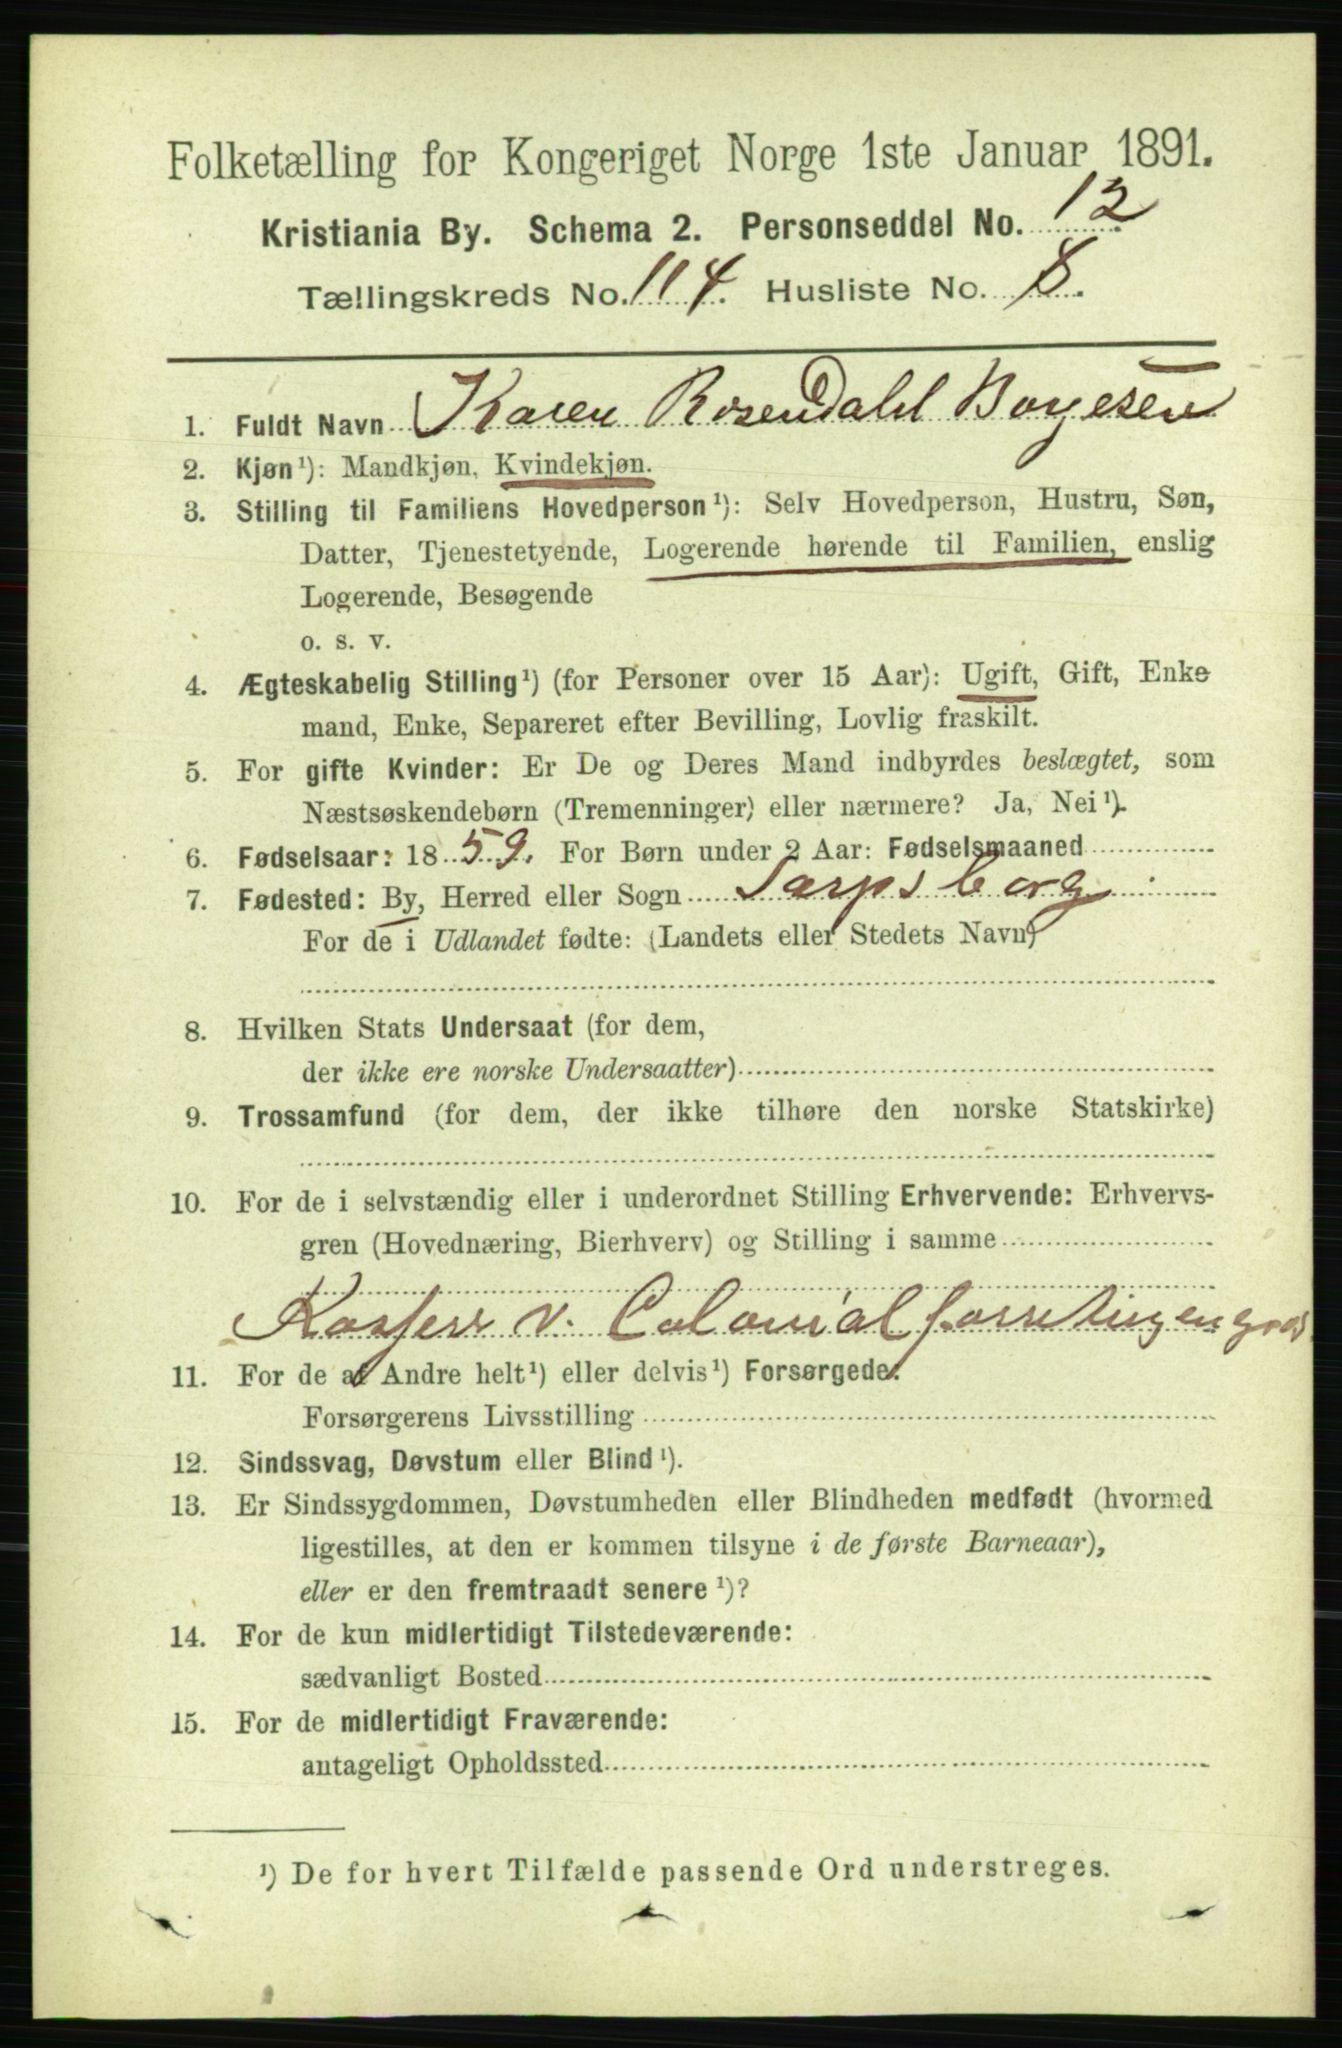 Folketælling for Kongeriget Norge 1ste Januar 1891.
Kristiania By. Schema 2. Personseddel No. 12
Tællingskreds No. 114. Husliste No. 8.
1. Fuldt Navn Karen Rosendahl Borgesen
2. Kjøn¹): Mandkjøn, Kvindekjøn.
3. Stilling til Familiens Hovedperson¹): Selv Hovedperson, Hustru, Søn,
Datter, Tjenestetyende, Logerende hørende til Familien, enslig
Logerende, Besøgende
o. s. v.
4. Ægteskabelig Stilling¹) (for Personer over 15 Aar): Ugift, Gift, Enke
mand, Enke, Separeret efter Bevilling, Lovlig fraskilt.
5. For gifte Kvinder: Er De og Deres Mand indbyrdes beslægtet, som
Næstsøskendebørn (Tremenninger) eller nærmere? Ja, Nei¹).
6. Fødselsaar: 1859. For Børn under 2 Aar: Fødselsmaaned
7. Fødested: By, Herred eller Sogn Sarpsborg
For de i Udlandet fødte: (Landets eller Stedets Navn)
8. Hvilken Stats Undersaat (for dem,
der ikke ere norske Undersaatter)
9. Trossamfund (for dem, der ikke tilhøre den norske Statskirke)
10. For de i selvstændig eller i underordnet Stilling Erhvervende: Erhvervs-
gren (Hovednæring, Bierhverv) og Stilling i samme
Kasserer v. Colonialforretning en gros
11. For de af Andre helt¹) eller delvis¹) Forsørgede:
Forsørgerens Livsstilling
12. Sindssvag, Døvstum eller Blind¹).
13. Er Sindssygdommen, Døvstumheden eller Blindheden medfødt (hvormed
ligestilles, at den er kommen tilsyne i de første Barneaar),
eller er den fremtraadt senere¹)?
14. For de kun midlertidigt Tilstedeværende:
sædvanligt Bosted
15. For de midlertidigt Fraværende:
antageligt Opholdssted
¹) De for hvert Tilfælde passende Ord understreges.